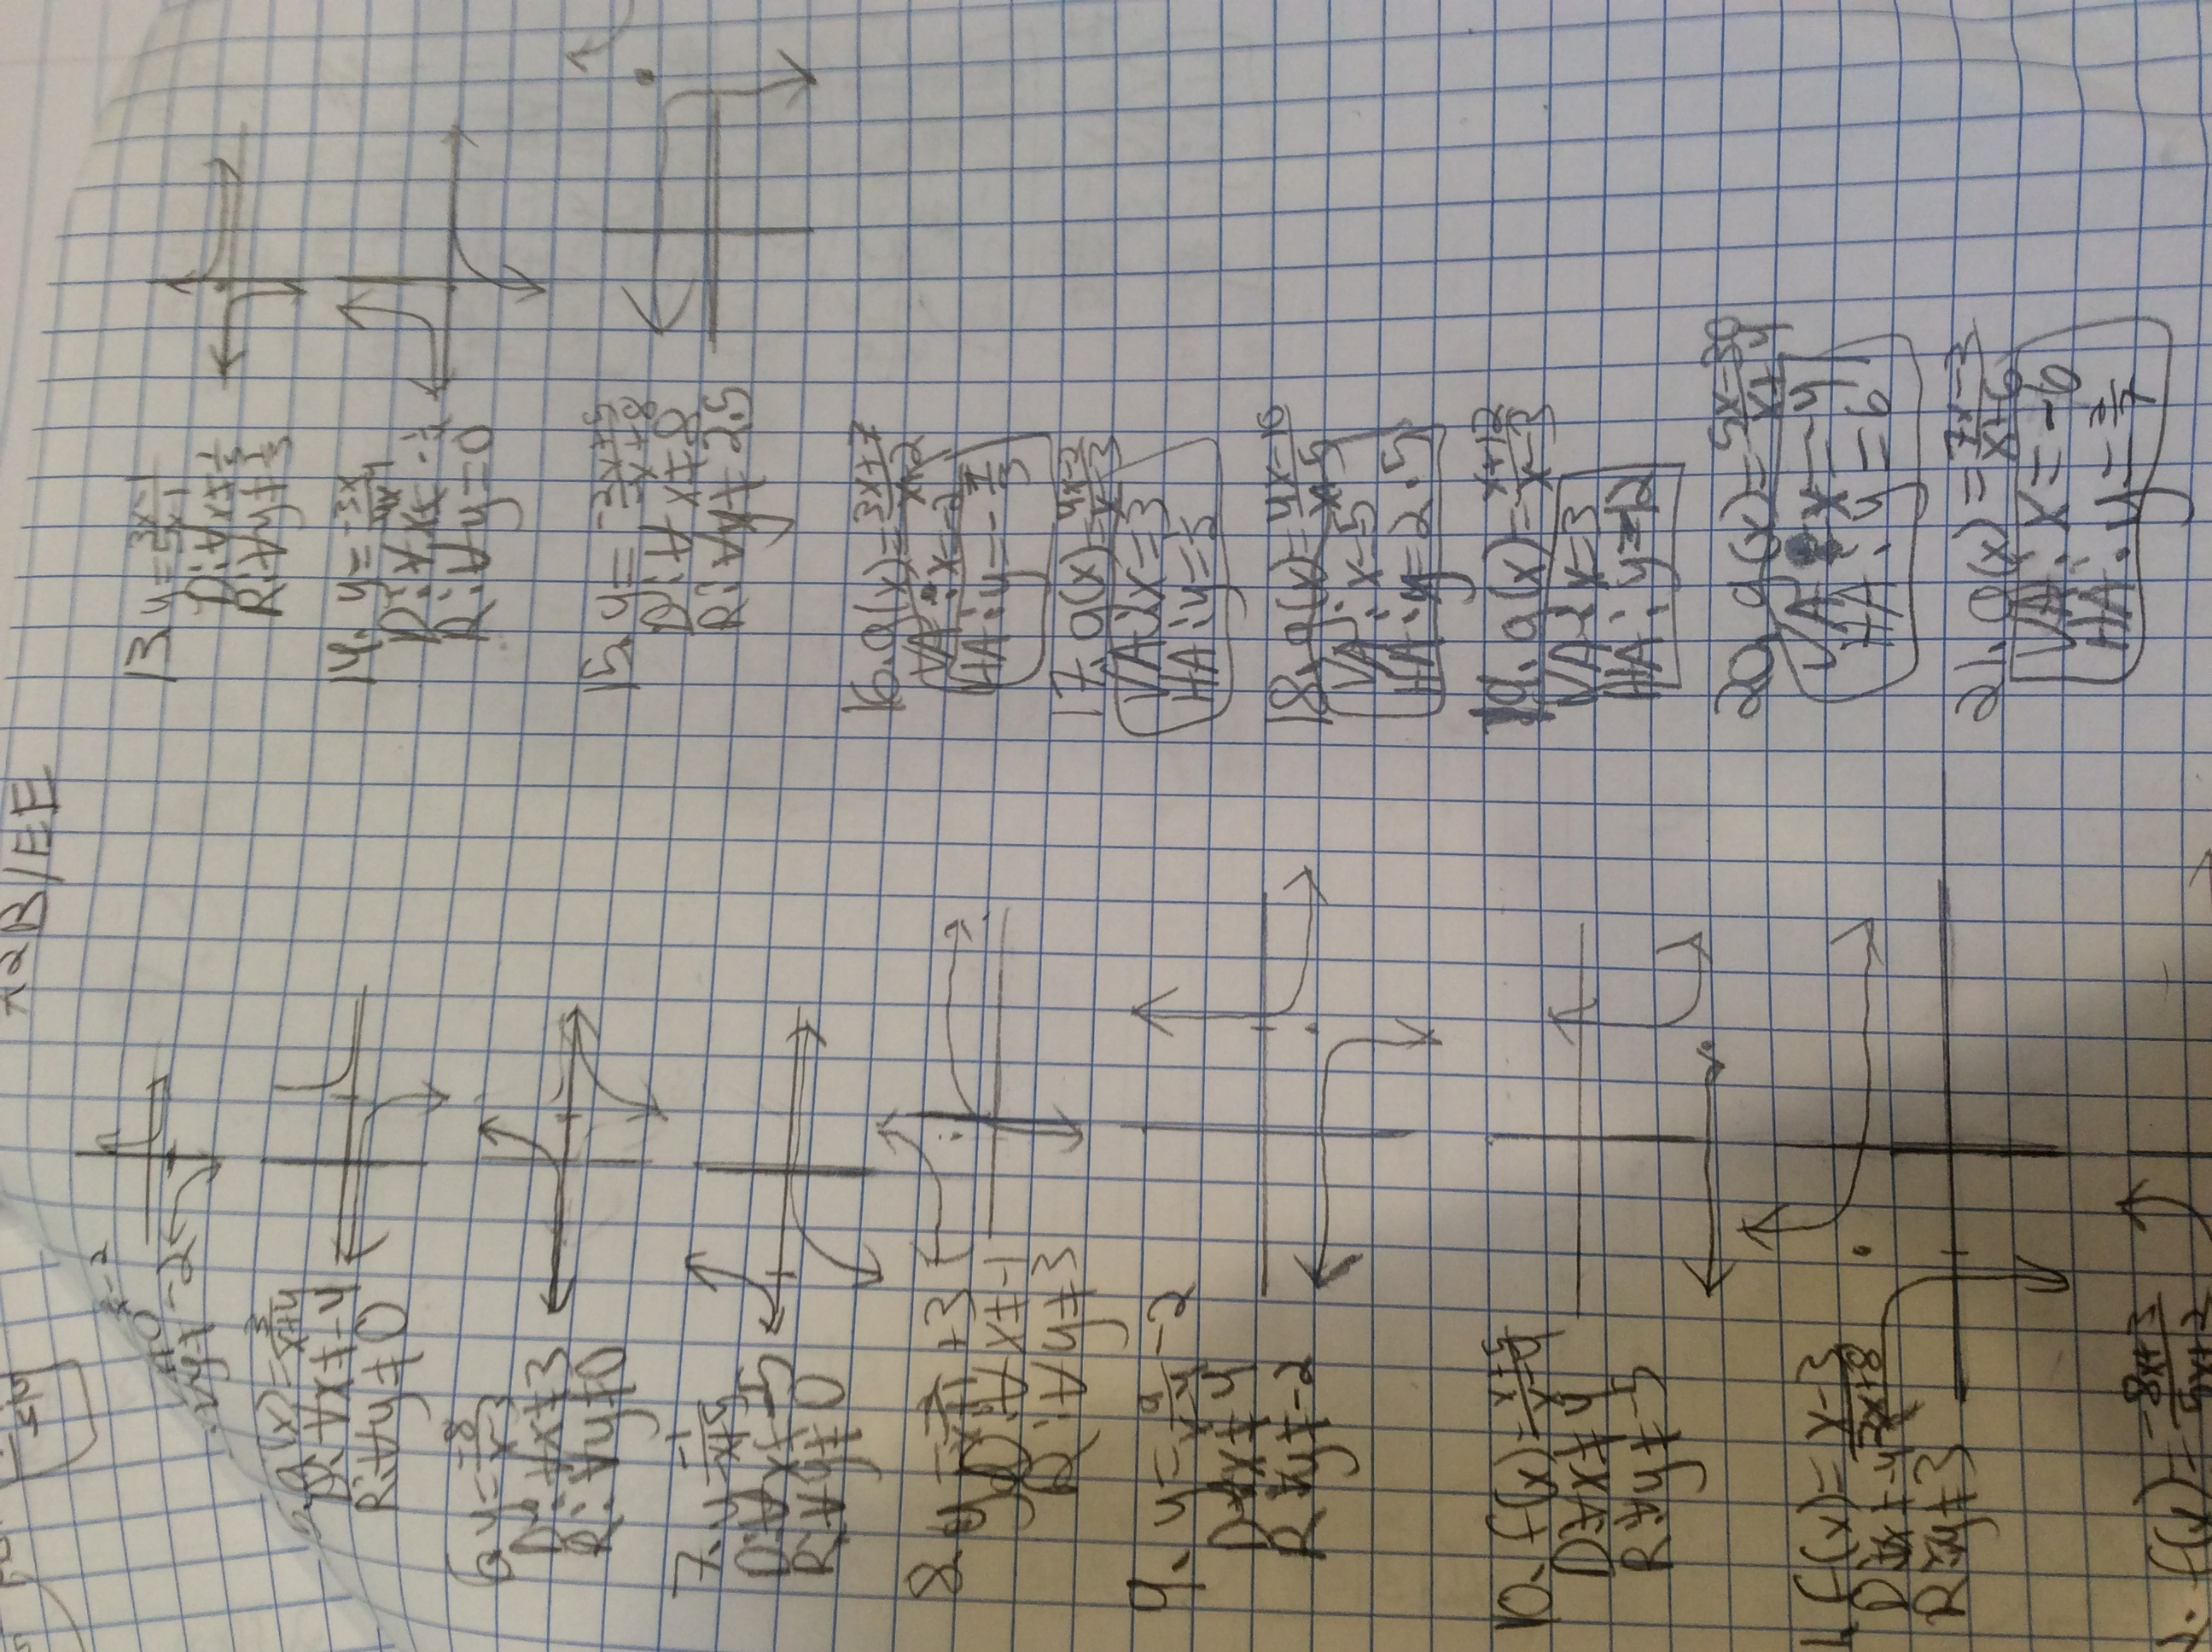 A2B/EE
x-2
≠0
∀y≠-2
g(x)=3/(x+4)
D:∀x≠-4
R:∀y≠0
6. y=-8/(x-3)
D:∀x≠3
R:∀y≠0
7. y=-1/(x+5)
D:∀x≠-5
R:∀y≠0
8.
+3
D:∀x≠-1
R:∀y≠3
9. y= -2
D ∀x≠4
R ∀y≠-2
10. f(x)=(x+5)/(x-4)
D:∀x≠4
R:∀y≠-5
1. f(x)=(x-3)/(2x+8)
D:∀x≠-4
R:∀y≠3
f(x)=(-8x+3)/(5x+2)
13. y=(3x-1)/(5x-1)
D:∀x≠1/5
R:∀y≠1/3
14. y=-3x/(4x+1)
D:∀x≠
R:∀y=0
15. y=(-2x+5)/(-x+8)
D:∀x≠8
R:∀y≠2.5
16. g(x)=(3x+7)/(x+2)
VA:x=-2
HA:y=-7/3
17. g(x)=(4x-2)/(x-3)
VA:x=3
HA:y=
18. g(x)=(4x-10)/(x-5)
VA:x=5
HA:y=2.5
19. g(x)=(x+12)/(x-3)
VA:x=3
HA:y=-12
20. g(x)=(5x-30)/(x+4)
VA:x=-4
HA:y=6
21. g(x)=(7x-3)/(x+6)
VA:x=-6
HA:y=3/7